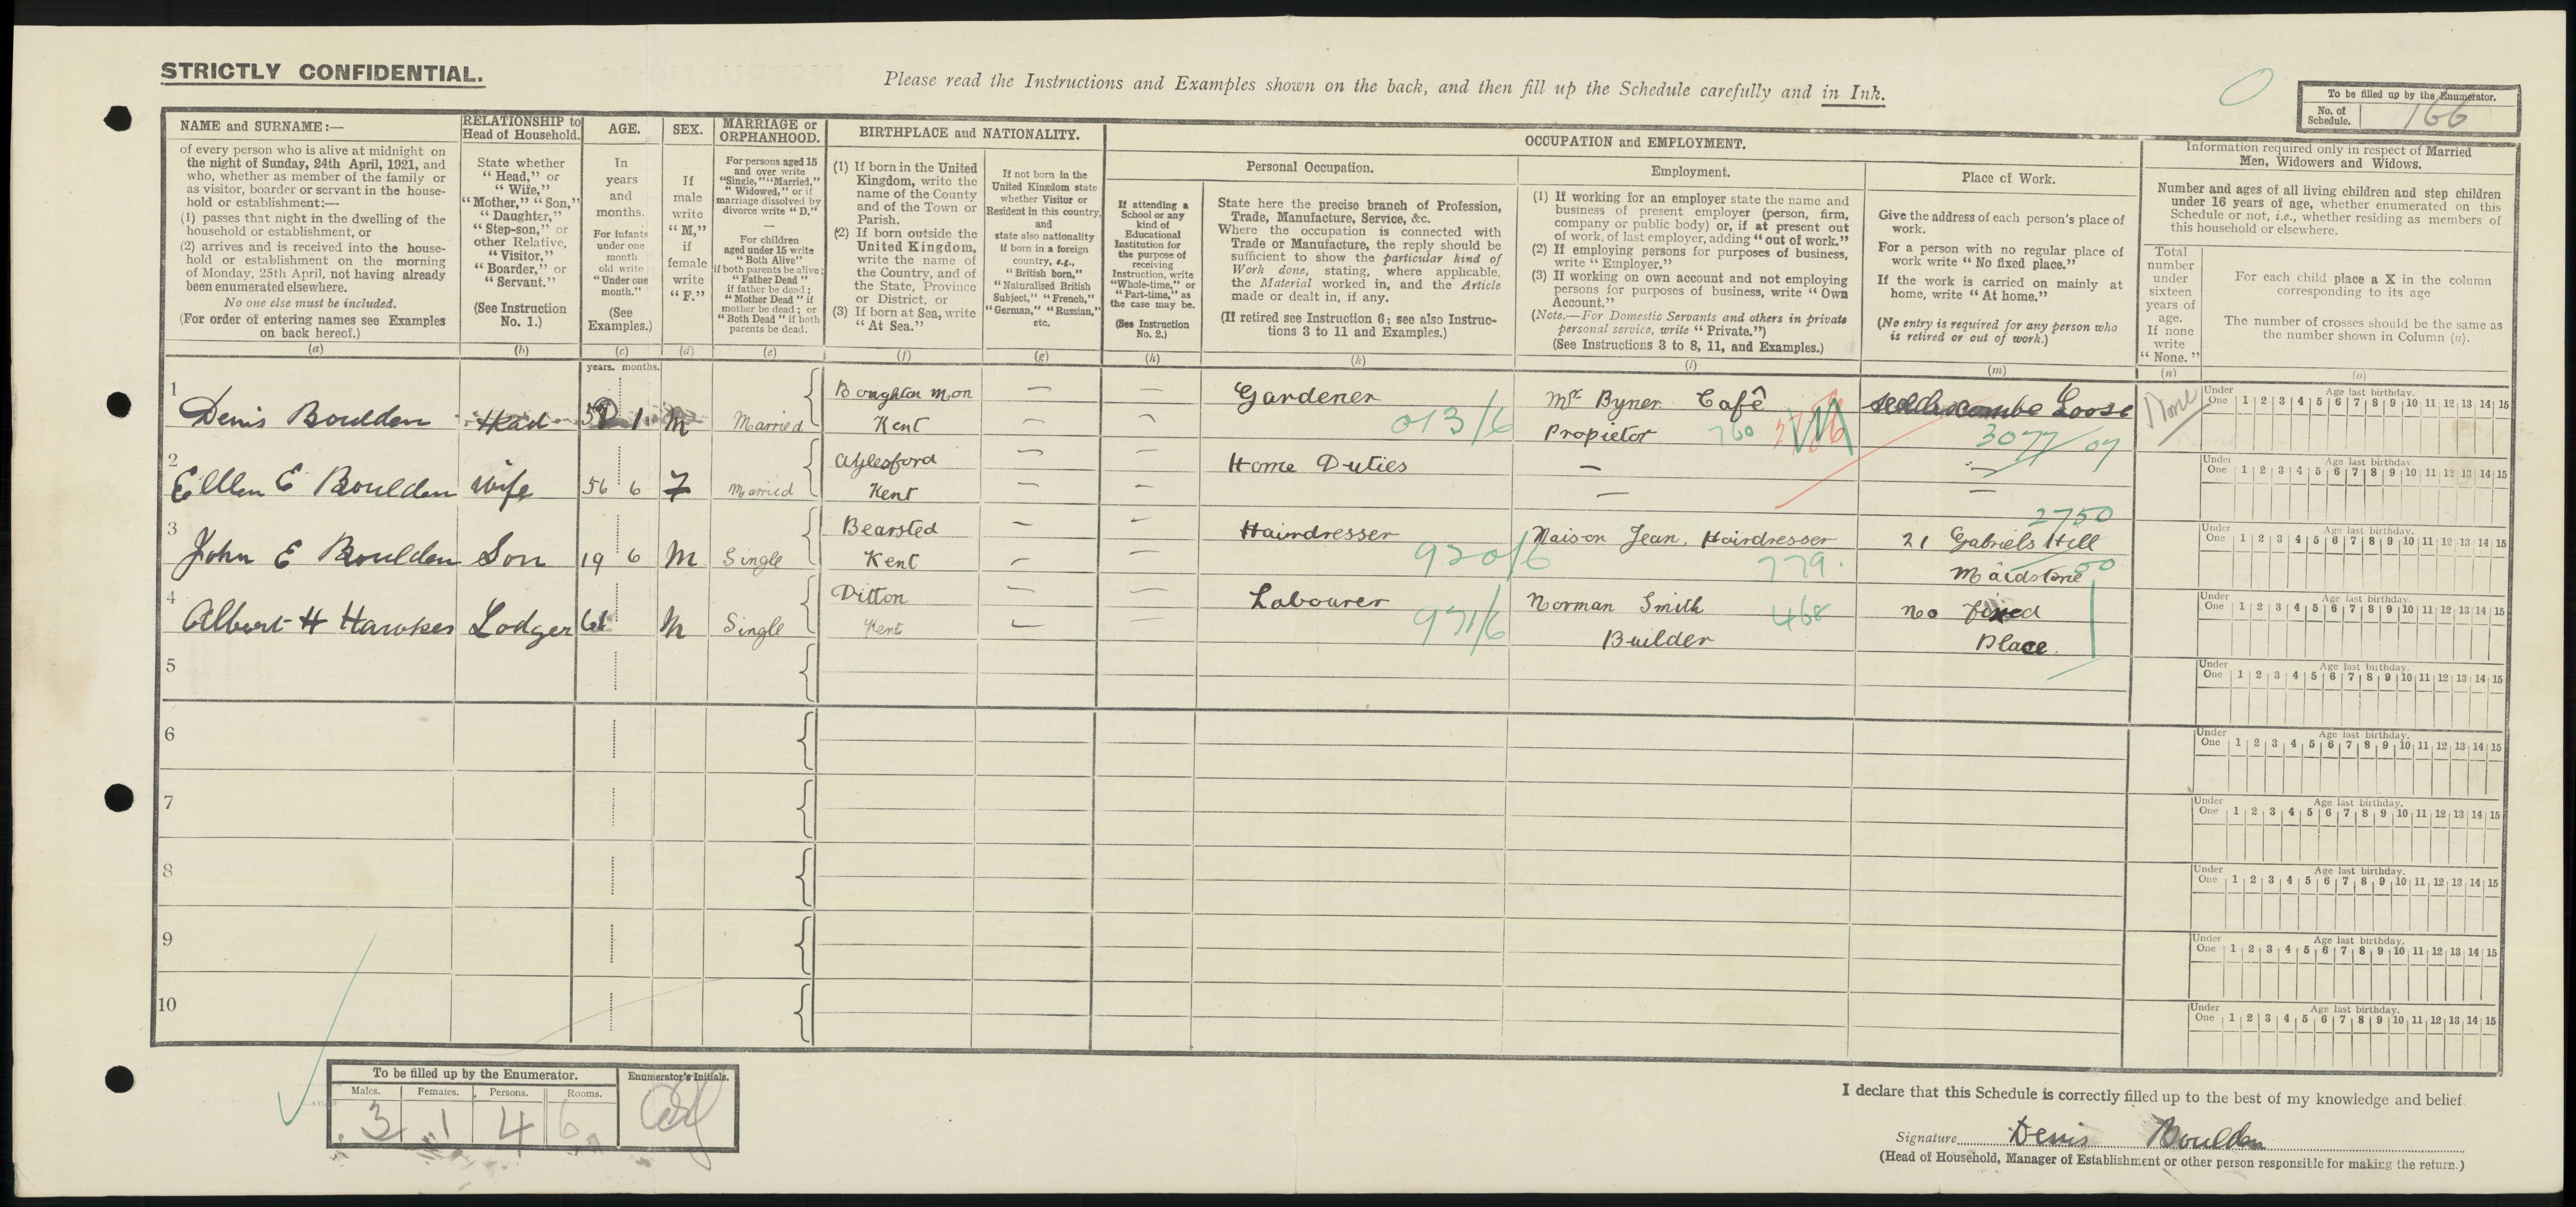 STRICTLY CONFIDENTIAL.
Please read the Instructions and Examples shown on the back, and then fill up the Schedule carefully and in Ink.
To be filled up by the Enumerator.
No. of Schedule. 166
NAME and SURNAME:—
of every person who is alive at midnight on
the night of Sunday, 24th April, 1921, and
who, whether as member of the family or
as visitor, boarder or servant in the house-
hold or establishment:—
(1) passes that night in the dwelling of the
household or establishment, or
(2) arrives and is received into the house-
hold or establishment on the morning
of Monday, 25th April, not having already
been enumerated elsewhere.
No one else must be included.
(For order of entering names see Examples
on back hereof.)
(a)
RELATIONSHIP to
Head of Household.
State whether
"Head," or
"Wife,"
"Mother," "Son,"
"Daughter,"
"Step-son," or
other Relative,
"Visitor,"
"Boarder," or
"Servant."
(See Instruction
No. 1.)
(b)
AGE.
In
years
and
months.
For infants
under one
month
old write
"Under one
month."
(See
Examples.)
(c)
SEX.
If
male
write
"M,"
if
female
write
"F."
(d)
MARRIAGE or
ORPHANHOOD.
For persons aged 15
and over write
"Single," "Married,"
"Widowed," or if
marriage dissolved by
divorce write "D."
For children
aged under 15 write
"Both Alive"
if both parents be alive;
"Father Dead"
if father be dead;
"Mother Dead" if
mother be dead; or
"Both Dead" if both
parents be dead.
(e)
BIRTHPLACE and NATIONALITY.
(1) If born in the United
Kingdom, write the
name of the County
and of the Town or
Parish.
(2) If born outside the
United Kingdom,
write the name of
the Country, and of
the State, Province
or District, or
(3) If born at Sea, write
"At Sea."
(f)
If not born in the
United Kingdom state
whether Visitor or
Resident in this country,
and
state also nationality
if born in a foreign
country, e.g.,
"British born,"
"Naturalised British
Subject," "French,"
"German," "Russian,"
etc.
(g)
OCCUPATION and EMPLOYMENT.
If attending a
School or any
kind of
Educational
Institution for
the purpose of
receiving
Instruction, write
"Whole-time," or
"Part-time," as
the case may be.
(See Instruction
No. 2.)
(h)
Personal Occupation.
State here the precise branch of Profession,
Trade, Manufacture, Service, &c.
Where the occupation is connected with
Trade or Manufacture, the reply should be
sufficient to show the particular kind of
Work done, stating, where applicable,
the Material worked in, and the Article
made or dealt in, if any.
(If retired see Instruction 6; see also Instruc-
tions 3 to 11 and Examples.)
(k)
Employment.
(1) If working for an employer state the name and
business of present employer (person, firm,
company or public body) or, if at present out
of work, of last employer, adding "out of work."
(2) If employing persons for purposes of business,
write "Employer."
(3) If working on own account and not employing
persons for purposes of business, write "Own
Account."
(Note.—For Domestic Servants and others in private
personal service, write "Private.")
(See Instructions 3 to 8, 11, and Examples.)
(l)
Place of Work.
Give the address of each person's place of
work.
For a person with no regular place of
work write "No fixed place."
If the work is carried on mainly at
home, write "At home."
(No entry is required for any person who
is retired or out of work.)
(m)
Information required only in respect of Married
Men, Widowers and Widows.
Number and ages of all living children and step children
under 16 years of age, whether enumerated on this
Schedule or not, i.e., whether residing as members of
this household or elsewhere.
Total
number
under
sixteen
years of
age.
If none
write
"None."
(n)
For each child place a X in the column
corresponding to its age
The number of crosses should be the same as
the number shown in Column (n).
(o)
years. months.
1 Denis Boulden Head 1 M Married Boughton Mon Kent — — Gardener 013/6 Mr Byner Café Propietor 760 Loose 3077/07 None
2 Ellen E Boulden Wife 56 6 F Married Aylesford Kent — — Home Duties — —
3 John E Boulden Son 19 6 M Single Bearsted Kent — — Hairdresser 920/6 Maison Jean. Hairdresser 779. 21 Gabriels Hill Maidstone 2750
4 Albert H Hawkes Lodger 61 M Single Ditton Kent — — Labourer 971/6 Norman Smith Builder 468 No fixed Place.
5
6
7
8
9
10
Under One Age last birthday. 1 2 3 4 5 6 7 8 9 10 11 12 13 14 15
Under One Age last birthday. 1 2 3 4 5 6 7 8 9 10 11 12 13 14 15
Under One Age last birthday. 1 2 3 4 5 6 7 8 9 10 11 12 13 14 15
Under One Age last birthday. 1 2 3 4 5 6 7 8 9 10 11 12 13 14 15
Under One Age last birthday. 1 2 3 4 5 6 7 8 9 10 11 12 13 14 15
Under One Age last birthday. 1 2 3 4 5 6 7 8 9 10 11 12 13 14 15
Under One Age last birthday. 1 2 3 4 5 6 7 8 9 10 11 12 13 14 15
Under One Age last birthday. 1 2 3 4 5 6 7 8 9 10 11 12 13 14 15
Under One Age last birthday. 1 2 3 4 5 6 7 8 9 10 11 12 13 14 15
Under One Age last birthday. 1 2 3 4 5 6 7 8 9 10 11 12 13 14 15
To be filled up by the Enumerator.
Enumerator's Initials.
Males. Females. Persons. Rooms.
3 1 4 6
I declare that this Schedule is correctly filled up to the best of my knowledge and belief.
Signature Denis Boulden
(Head of Household, Manager of Establishment or other person responsible for making the return.)